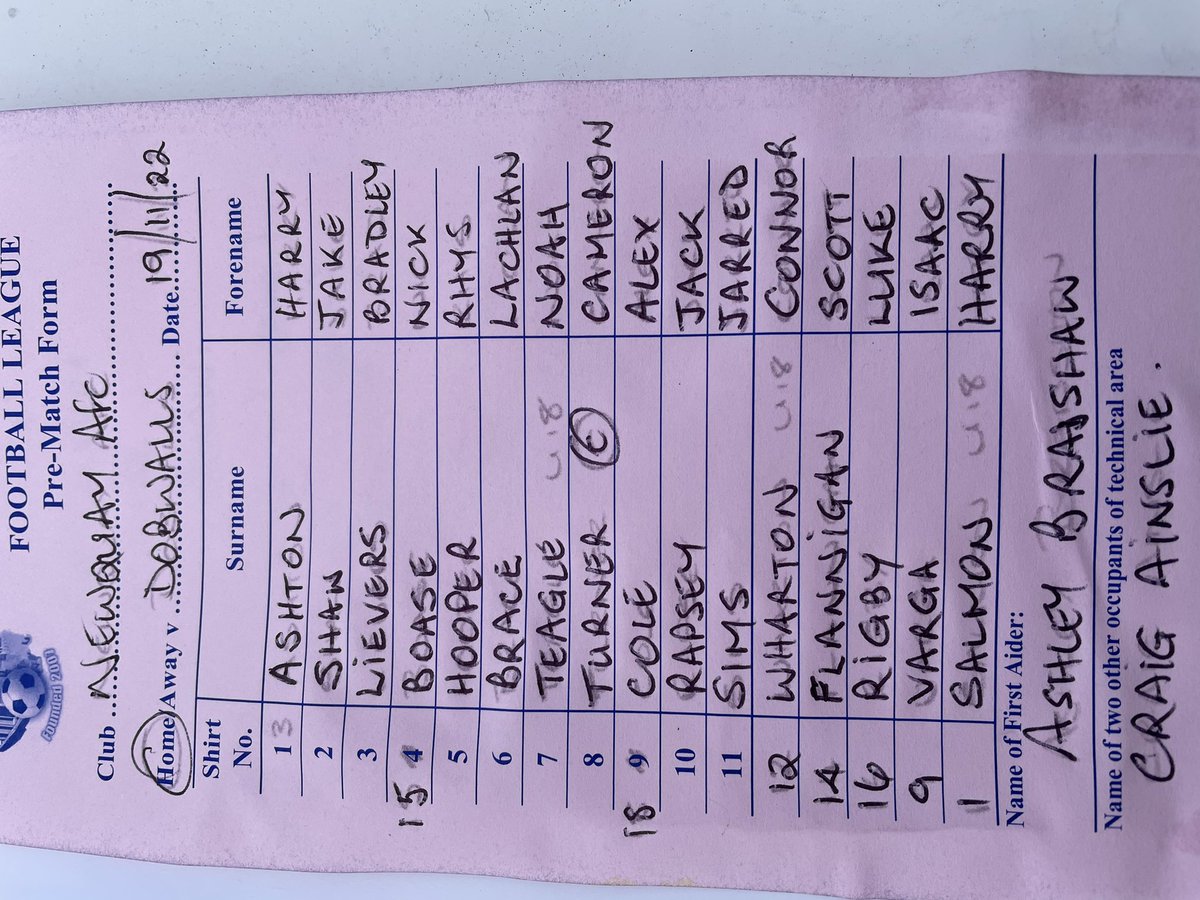 FOOTBALL LEAGUE
Pre-Match Form
Founded 2001
Club NEWQUAY AFC
Home/Away v DOBWALLS Date 19/11/22
Shirt No. Surname Forename
13 ASHTON HARRY
2 SHAN JAKE
3 LIEVERS BRADLEY
15 4 BOASE NICK
5 HOOPER RHYS
6 BRACE LACHLAN
7 TEAGLE U18 NOAH
8 TURNER (C) CAMERON
18 9 COLE ALEX
10 RAPSEY JACK
11 SIMS JARRED
12 WHARTON U18 CONNOR
14 FLANNIGAN SCOTT
16 RIGBY LUKE
9 VARGA ISAAC
11 SALMON U18 HARRY
Name of First Aider:
ASHLEY BRAISHAW
Name of two other occupants of technical area
CRAIG AINSLIE.